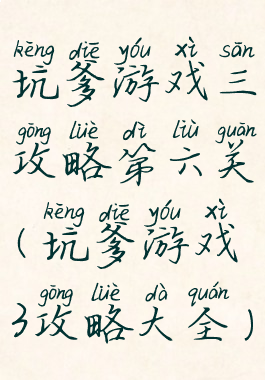 kēng diē yóu xì sān
坑爹游戏三
gōng lüè dì liù guān
攻略第六关
kēng diē yóu xì
(坑爹游戏
gōng lüè dà quán
3攻略大全)